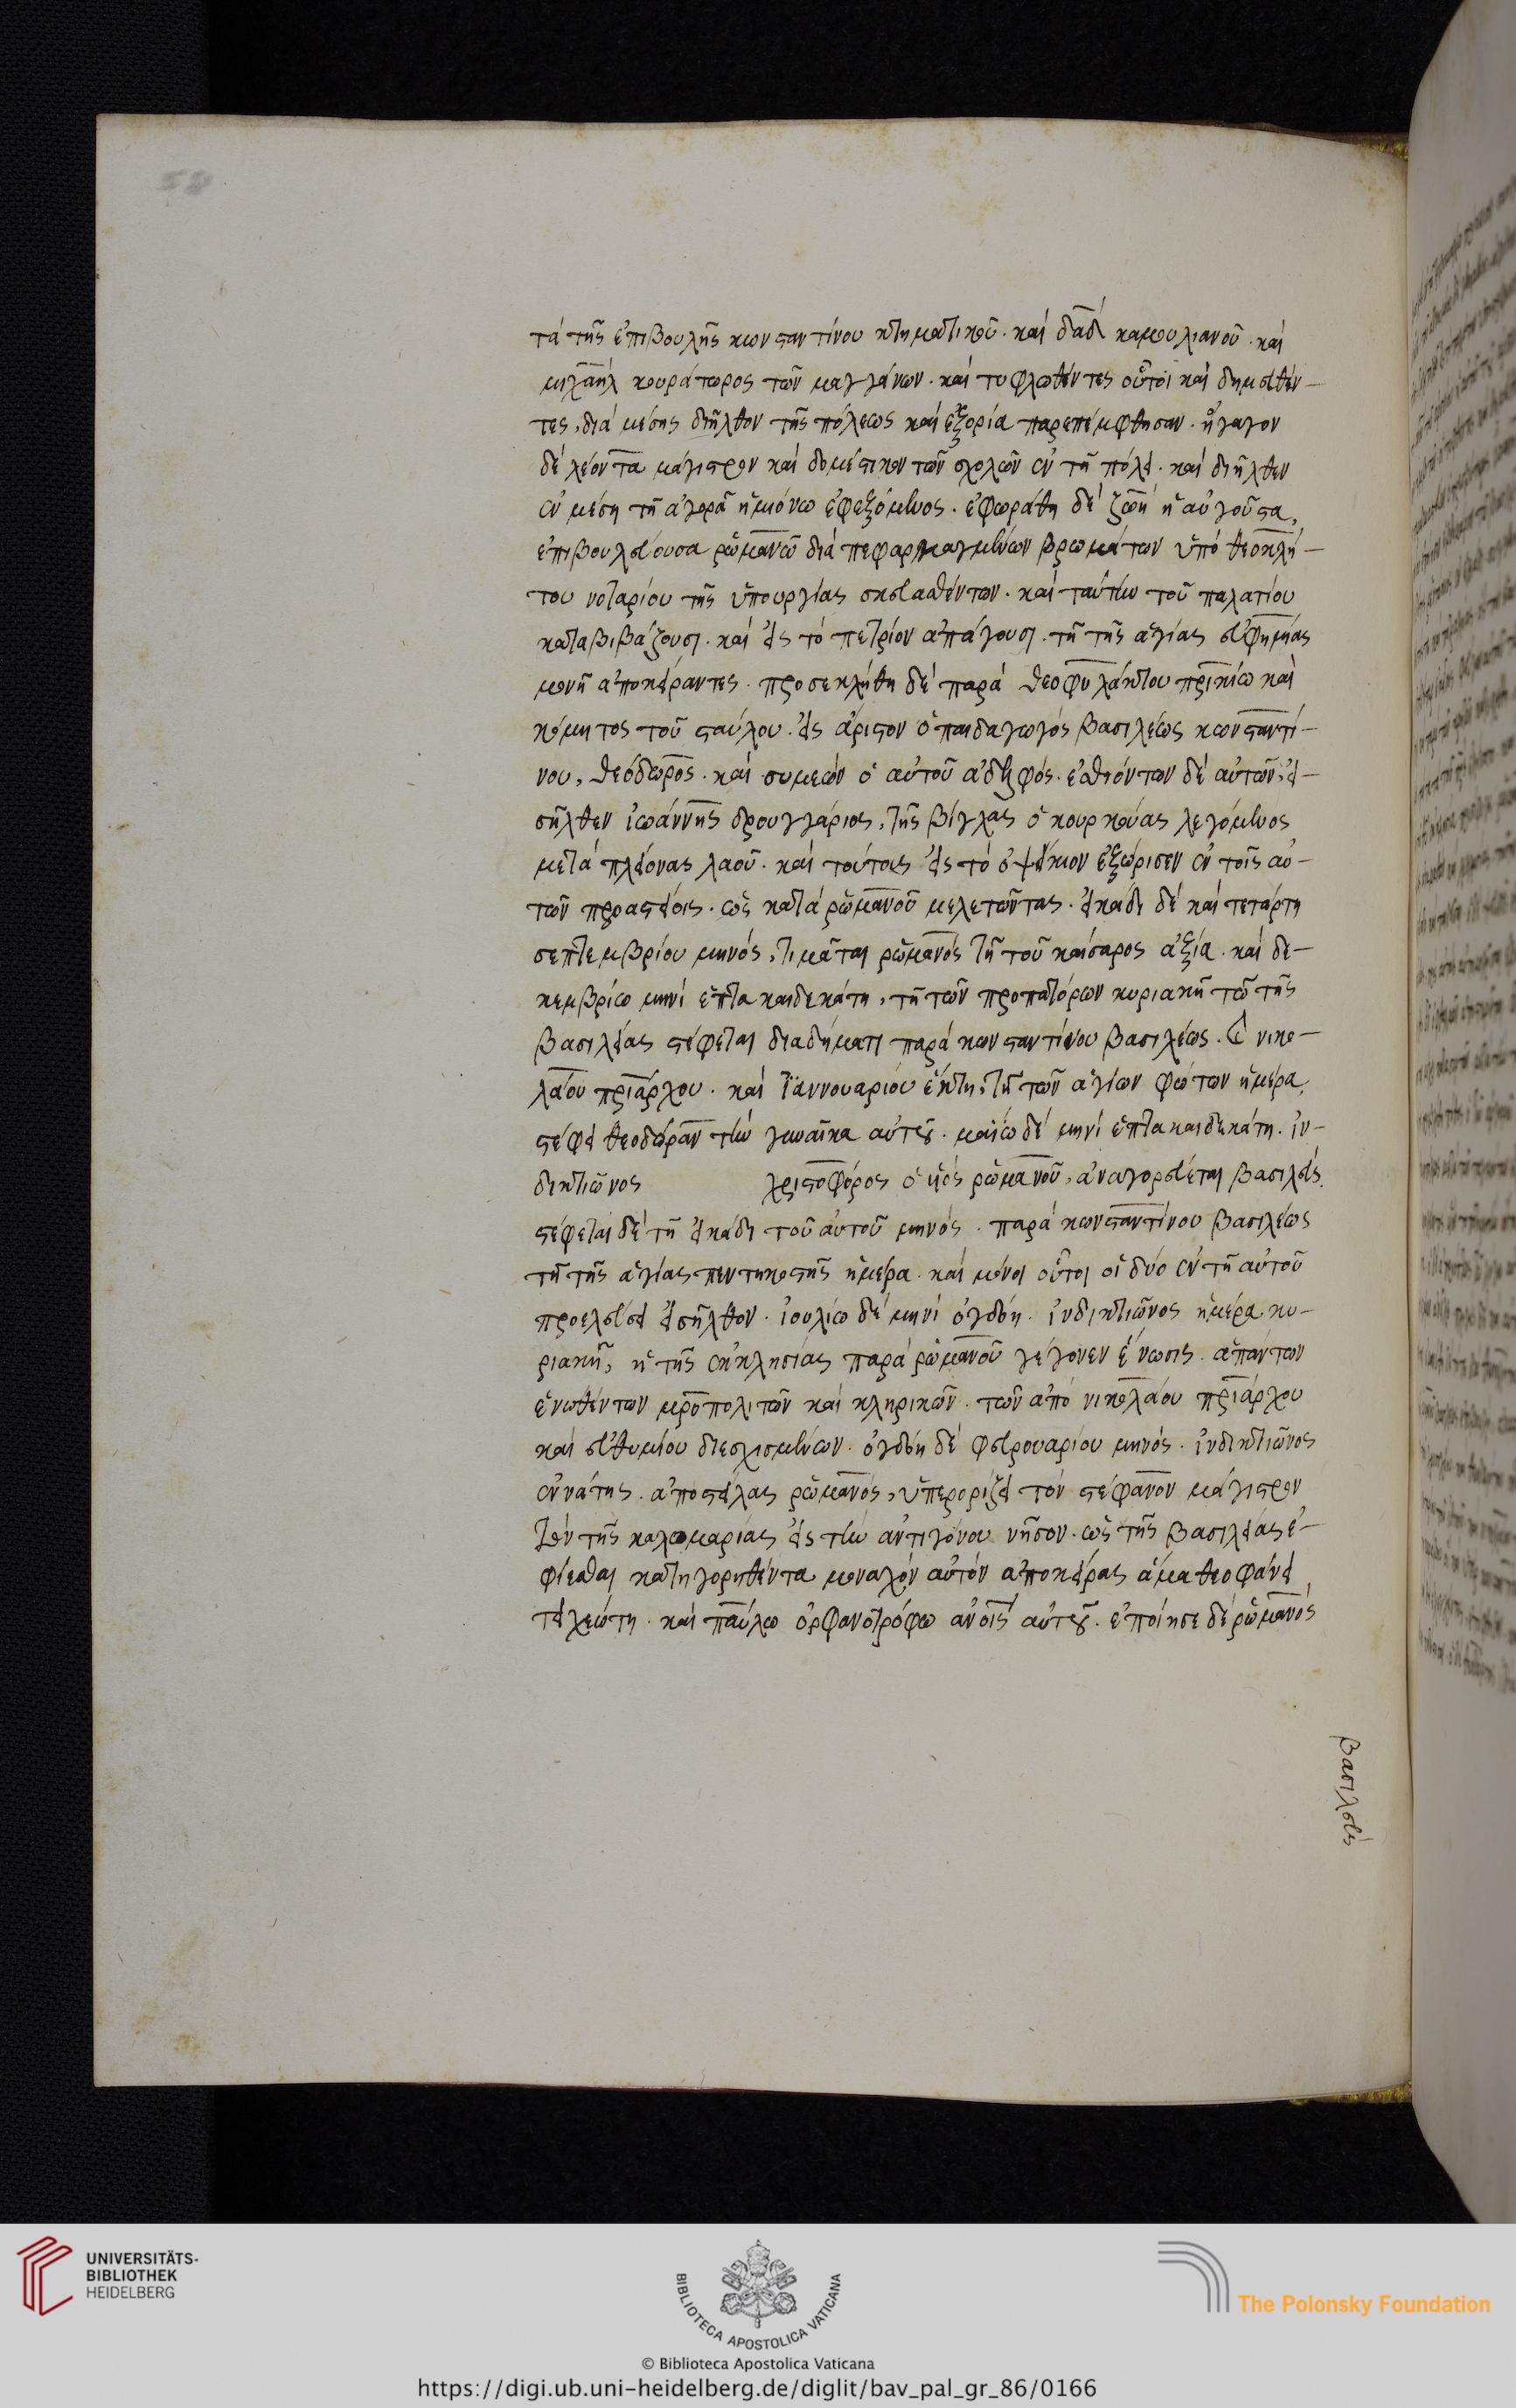 58
τὰ τῆς ἐπιβουλῆς κωνσταντίνου κτηματικοῦ. καὶ δαδὶ καμουλιανοῦ. καὶ
μιχαὴλ κουράτωρος τῶν μαγγάνων. καὶ τυφλωθέντες οὗτοι καὶ δημευθέν-
τες, διὰ μέσης διῆλθον τῆς πόλεως καὶ ἐξορία παρεπέμφθησαν. ἤγαγον
δὲ λέοντα μάγιστρον καὶ δομέστικον τῶν σχολῶν ἐν τῇ πόλει. καὶ διῆλθεν
ἐν μέση τῇ ἀγορᾷ ἡμιόνω ἐφεζόμενος. ἐφωράθη δὲ ζωὴ ἡ αὐγοῦστα,
ἐπιβουλεύουσα ῥωμανῶ διὰ πεφαρμαγμένων βρωμάτων ὑπὸ θεοκλή-
του νοταρίου τῆς ὑπουργίας σκευασθέντων. καὶ ταύτην τοῦ παλατίου
καταβιβάζουσι. καὶ εἰς τὸ πετρίον ἀπάγουσι. τῇ τῆς ἁγίας εὐφημίας
μονῇ ἀποκείραντες. προσεκλήθη δὲ παρὰ θεοφυλάκτου πρικίω καὶ
κόμητος τοῦ σταύλου. εἰς ἄριστον ὁ παιδαγωγὸς βασιλέως κωνσταντί-
νου, θεόδωρος. καὶ συμεὼν ὁ αὐτοῦ ἀδελφός. ἐσθιόντων δὲ αὐτῶν, εἰ-
σῆλθεν ἰωάννης δρουγγάριος, τῆς βίγλας ὁ κουρκούας λεγόμενος
μετὰ πλείονας λαοῦ. καὶ τούτοις εἰς τὸ ὀψίκιον ἐξώρισεν ἐν τοῖς αὐ-
τῶν προαστείοις. ὡς κατὰ ῥωμανοῦ μελετῶντας. εἰκάδι δὲ καὶ τετάρτη
σεπτεμβρίου μηνός, τιμᾶται ῥωμανὸς τῇ τοῦ καίσαρος ἀξία. καὶ δε-
κεμβρίω μηνὶ ἑπτακαιδεκάτη, τῇ τῶν προπατόρων κυριακῇ τῶ τῆς
βασιλείας στέφεται διαδήματι παρὰ κωνσταντίνου βασιλέως. καὶ νικο-
λάου πριάρχου. καὶ ἰαννουαρίου ἕκτη, τῇ τῶν ἁγίων φώτων ἡμέρα,
στέφει θεοδώραν τὴν γυναῖκα αὐτοῦ. μαΐω δὲ μηνὶ ἑπτακαιδεκάτη. ἰν-
δικτιῶνος χριστοφόρος ὁ υἱὸς ῥωμανοῦ, ἀναγορεύεται βασιλεύς.
στέφεται δὲ τῇ εἰκάδι τοῦ αὐτοῦ μηνός. παρὰ κωνσταντίνου βασιλέως
τῇ τῆς ἁγίας πεντηκοστῆς ἡμέρα. καὶ μόνοι οὗτοι οἱ δύο ἐν τῇ αὐτοῦ
προελεύσει εἰσῆλθον. ἰουλίω δὲ μηνὶ ὀγδόη. ἰνδικτιῶνος ἡμέρα κυ-
ριακῇ, ἡ τῆς ἐκκλησίας παρὰ ῥωμανοῦ γέγονεν ἕνωσις. ἁπάντων
ἑνωθέντων μροπολιτῶν καὶ κληρικῶν. τῶν ἀπὸ νικολάου πριάρχου
καὶ εὐθυμίου διεσχισμένων. ὀγδόη δὲ φευρουαρίου μηνός. ἰνδικτιῶνος
ἐννάτης. ἀποστείλας ῥωμανός, ὑπερορίζει τὸν στέφανον μάγιστρον
τὸν τῆς καλομαρίας εἰς τὴν ἀντιγόνου νῆσον. ὡς τῆς βασιλείας ἐ-
φίεσθαι κατηγορηθέντα μοναχὸν αὐτὸν ἀποκείρας ἅμα θεοφάνει
τειχεώτη. καὶ παύλω ὀρφανοτρόφω ἀνοις αὐτοῦ. ἐποίησε δὲ ῥωμανὸς
βασιλεὺς
UNIVERSITÄTS-
BIBLIOTHEK
HEIDELBERG
BIBLIOTECA APOSTOLICA VATICANA
The Polonsky Foundation
© Biblioteca Apostolica Vaticana
https://digi.ub.uni-heidelberg.de/diglit/bav_pal_gr_86/0166